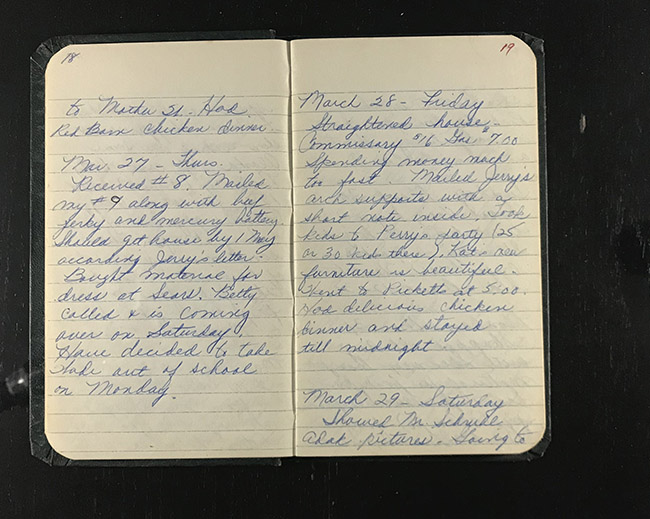 18
to Mother St. Had
Red Barn chicken dinner
Mar. 27 - Thurs.
Received #8. Mailed
my #9 along with beef
jerky and mercury battery
Should get house by 1 May
according Jerry's letter -
Bought material for
dress at Sears. Betty
called & is coming
over on Saturday
Have decided to take
out of school
on Monday.
19
March 28 - Friday
Straightened house -
Commissary $16 Gas $7.00
Spending money much
too fast. Mailed Jerry's
arch supports with a
short note inside. Took
kids to Perry's party (25
or 30 kids there). Kat's new
furniture is beautiful.
Went to Ricketts at 5:00.
Had delicious chicken
dinner and stayed
till midnight.
March 29 - Saturday
Showed M.
Adak pictures - Going to